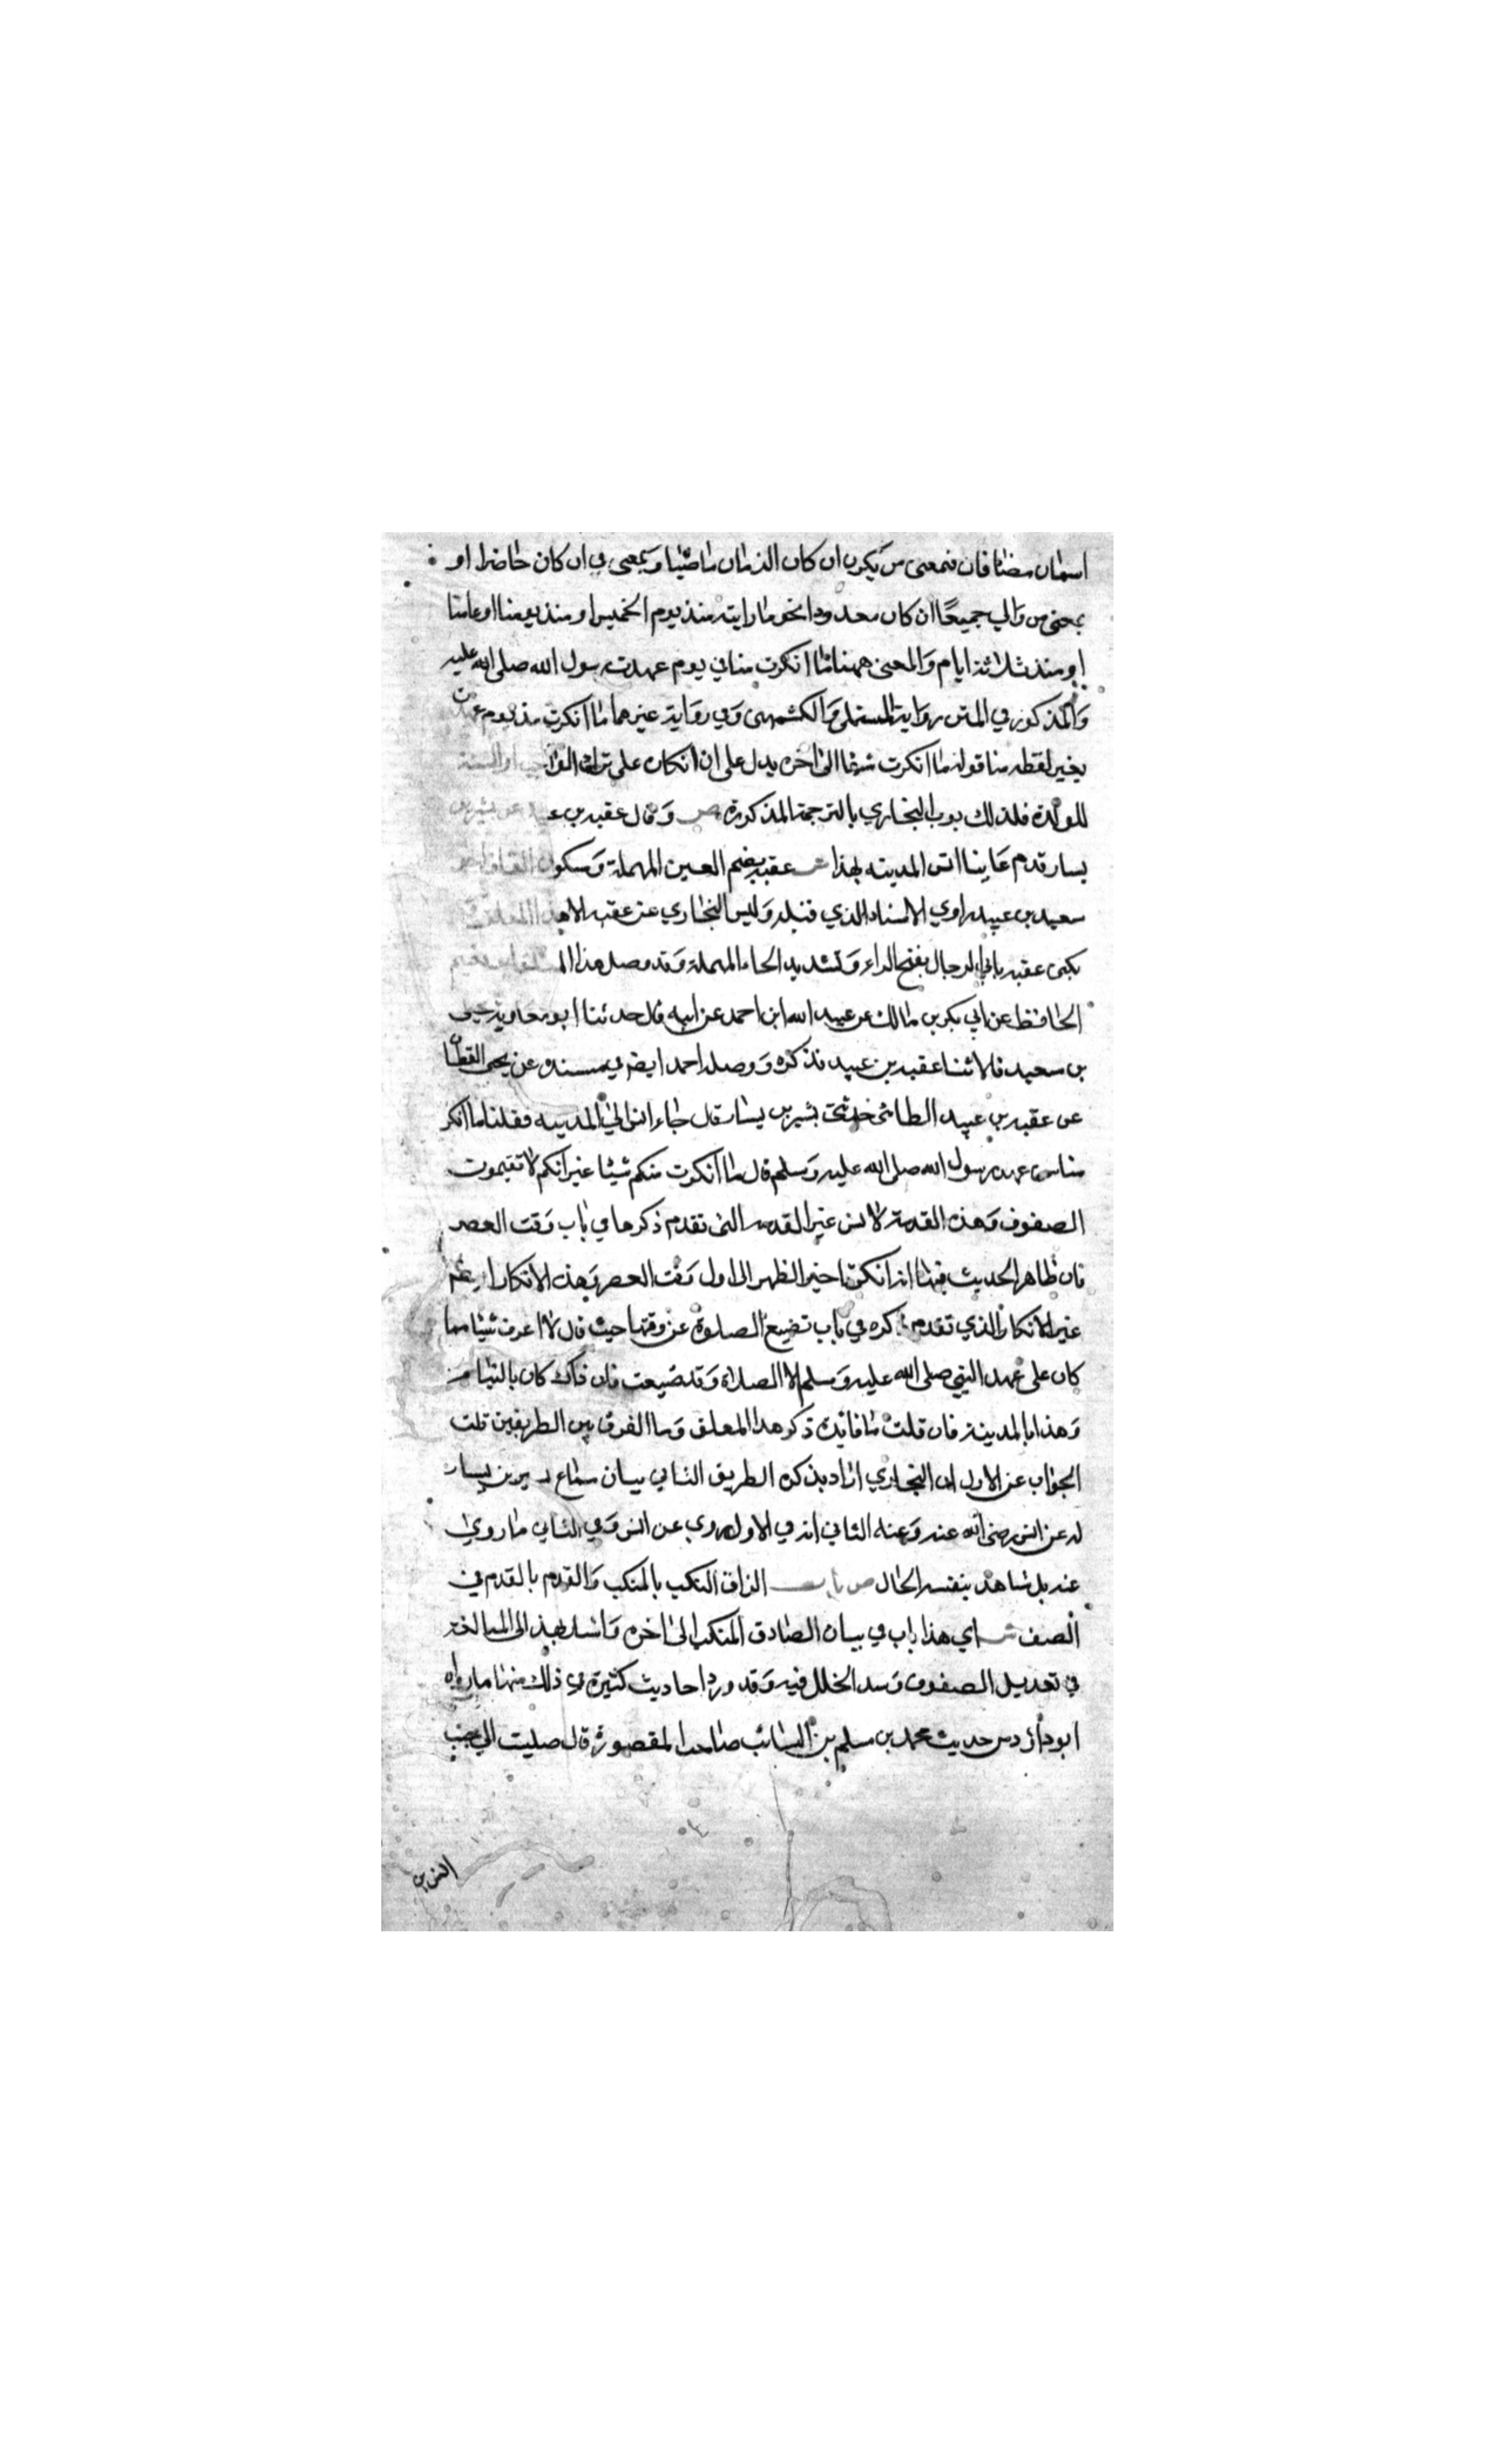 اسمان مضافان فبمعنى من يكون ان كان الزمان ماضيا وبمعنى في ان كان حاضرا او
بمعنى من والي جميعًا ان كان معدودا نحو ما رايته منذ يوم الخميس او منذ يومنا او عامنا
او منذ ثلاثة ايام والمعنى ههنا ما انكرت منا في يوم عهدت رسول الله صلى الله عليه
والمذكور في المتن رواية المستملى والكشمهى وفي رواية غيرهما ما انكرت منذ يوم عهدت
بغير لفظه منا قوله ما انكرت شيئا الى اخره يدل على ان انكاره على ترك الواجب او السنة
للولدة فلذلك بوب البخاري بالترجمة المذكورة ص وقال عقبه بن عبيد عن بشير بن
يسار قدم علينا انس المدينه بهذا ش عقبه بضم العين المهملة وسكون القاف اخو
سعيد بن عبيد راوي الاسناد الذي قبله وليس للبخاري عن عقبه الا هذا المعلق و
يكنى عقبه بابي الرحال بفتح الراء وتشديد الحاء المهملة وقد وصل هذا ابو نعيم
الحافظ عن ابي بكر بن مالك عن عبيد الله ابن احمد عن ابيه قال حدثنا ابو معاوية يحيى
بن سعيد قالا ثنا عقبه بن عبيد فذكره ووصله احمد ايضا في مسنده عن يحيى القطان
عن عقبه بن عبيد الطائى حدثنى بشير بن يسار قال جاء انس الى المدينه فقلنا ما انكر
منا من عهد رسول الله صلى الله عليه وسلم قال ما انكرت منكم شيئا غير انكم لا تقيموت
الصفوف وهذه القدمة لانس غير القدمه التى تقدم ذكرها في باب وقت العصر
فان ظاهر الحديث فيها انه انكر تاخير الظهر الى اول وقت العصر وهذه الانكار ايضا
غير الانكار الذي تقدم ذكره في باب تضييع الصلوة عن وقتها حيث قال لا اعرف شيئا مما
كان على عهد النبي صلى الله عليه وسلم الا الصلاة وقد ضيعت فان ذاك كان بالشام
وهذا بالمدينة فان قلت ما فائدة ذكر هذا المعلق وما الفرق بين الطريقين قلت
الجواب عن الاول ان البخاري اراد بذكره الطريق الثاني بيان سماع بشير بن يسار
له عن انس رضى الله عنه وعنه الثاني انه في الاول روى عن انس وفي الثاني ما روى
عنه بل شاهد بنفسه الحال ص باب الزاق المنكب بالمنكب والقدم بالقدم في
الصف ش اي هذا باب في بيان الصادق المنكب الى اخره واشار بهذا الى المبالغة
في تعديل الصفوف وسد الخلل فيه وقد ورد احاديث كثيرة في ذلك منها ما رواه
ابو داؤد من حديث محمد بن مسلم بن السائب صاحب المقصورة قال صليت الى جنب
انس بن